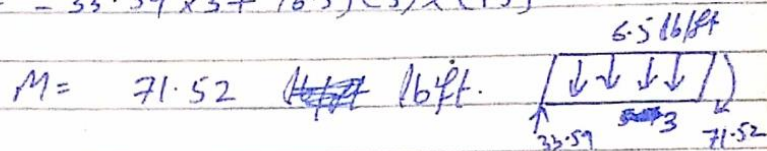 - 33.59 x 3 + (6.5)(3) x (1.5)
6.5 lb/ft
M = 71.52 lbft.
3
33.59 71.52